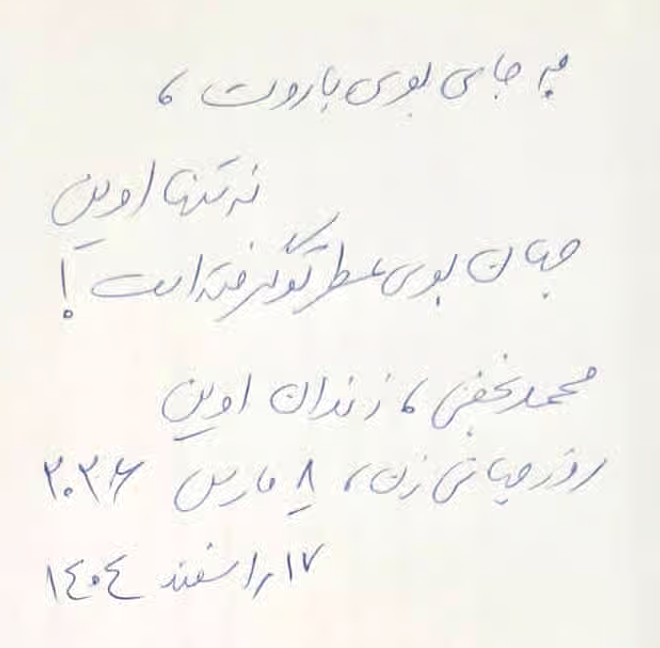 به جای بوی باروت،
نه تنها اوین
جهان بوی عطر تو گرفته است!
محمد نجفی، زندان اوین
روز جهانی زن، ۸ مارس ۲۰۲۶
۱۷/اسفند ۱۴۰۴